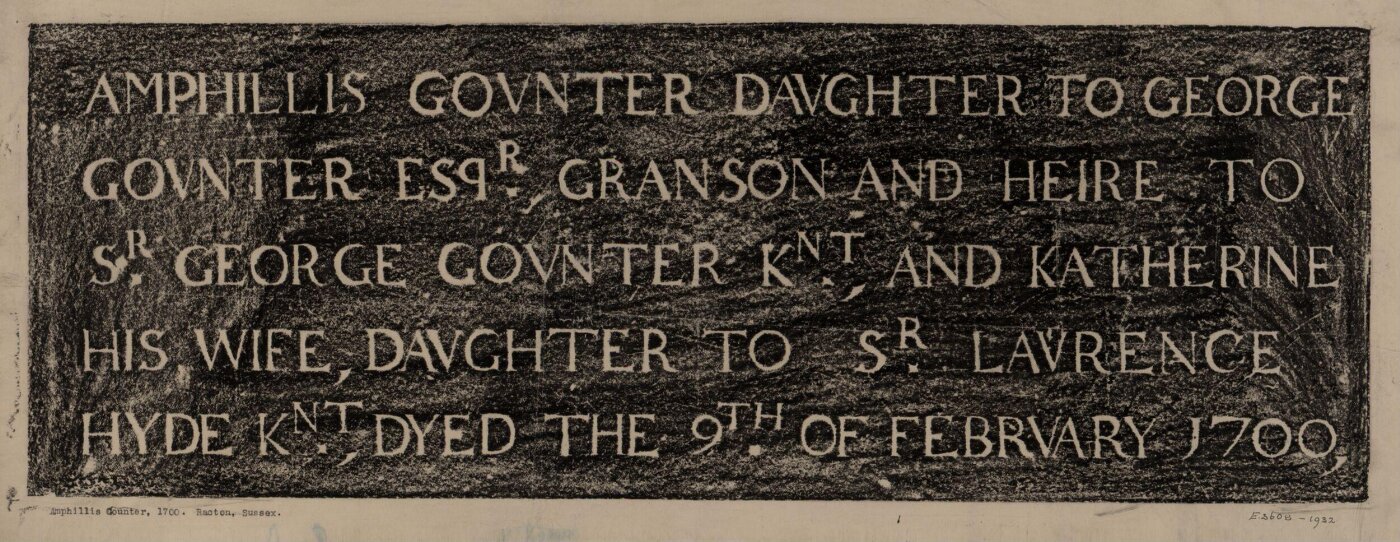 AMPHILLIS GOVNTER DAVGHTER TO GEORGE
GOVNTER ESqR, GRANSON AND HEIRE TO
SR. GEORGE GOVNTER KNT, AND KATHERINE
HIS WIFE, DAVGHTER TO SR. LAVRENCE
HYDE KNT, DYED THE 9TH OF FEBRVARY 1700,
Amphillis Gounter, 1700. Racton, Sussex.
E.3608 - 1932